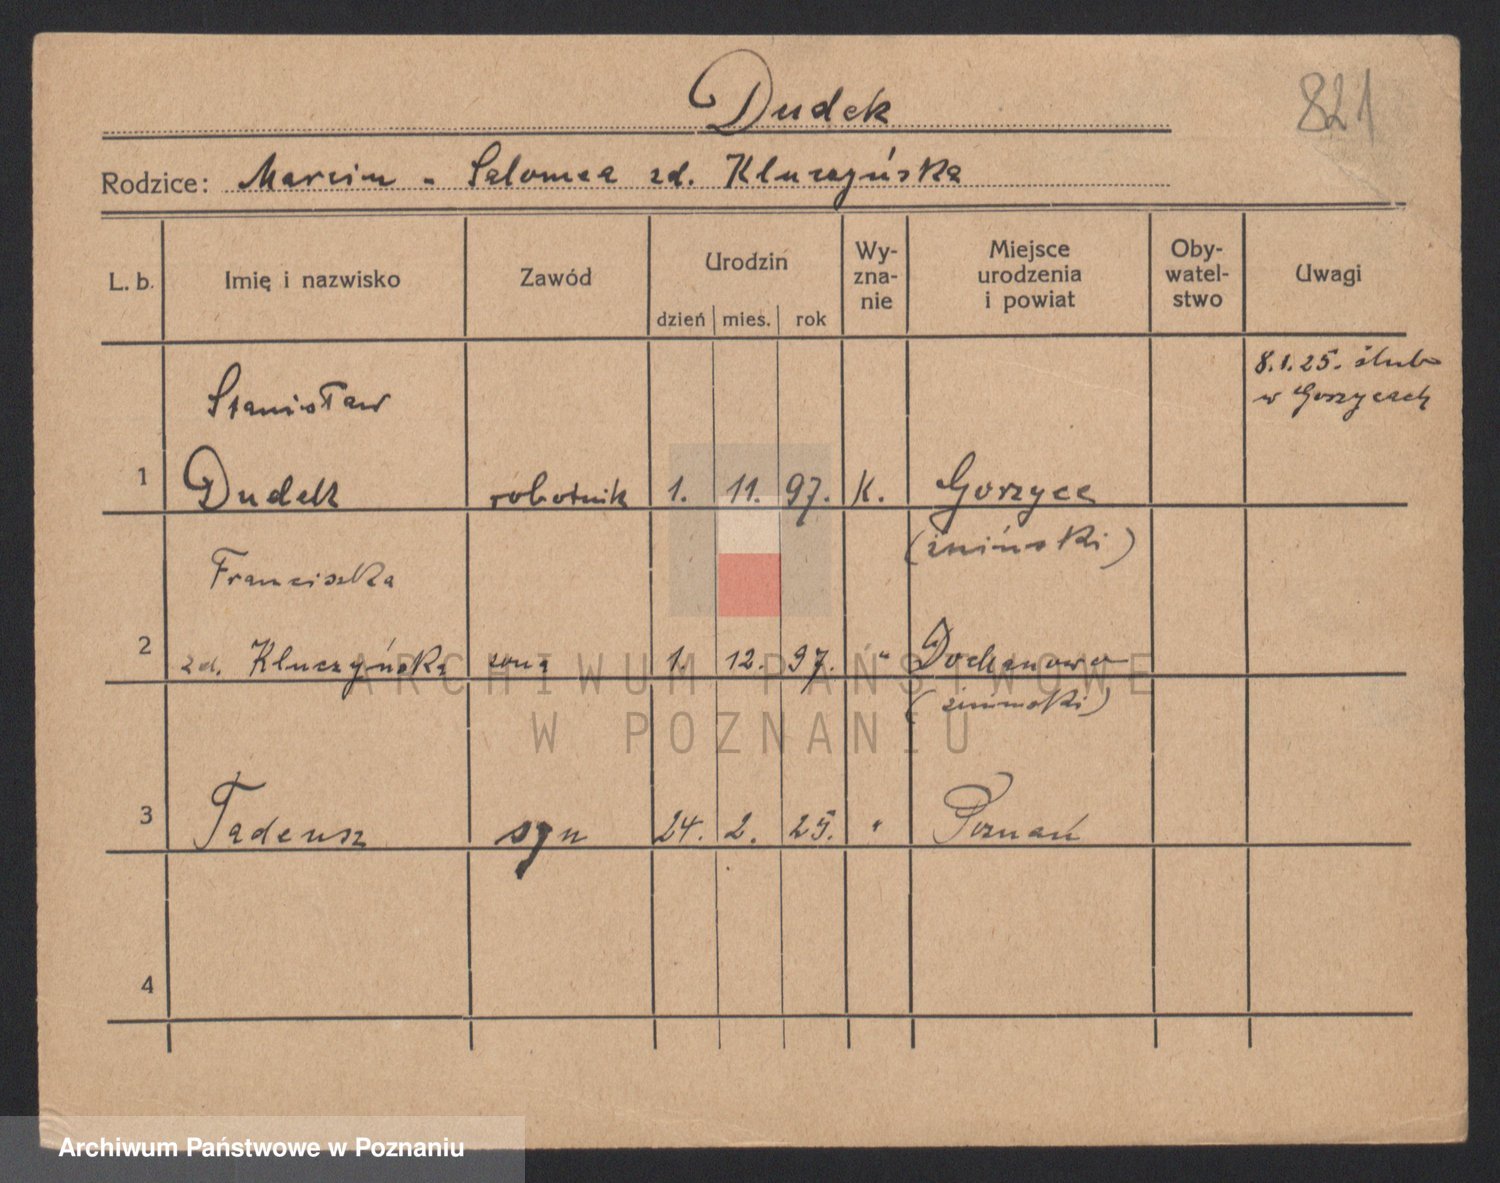 Dudek
821
Rodzice: Marcin - Salomea zd. Kluczyńska
L. b. Imię i nazwisko Zawód Urodzin dzień mies. rok Wy-zna-nie Miejsce urodzenia i powiat Oby-watel-stwo Uwagi
8.1.25. ślub
w Gorzycach
Stanisław
1 Dudek robotnik 1. 11. 97. K. Gorzyce
(żniński)
Franciszka
2 zd. Kluczyńska żona 1. 12. 97. " Dochanowo
(żniński)
3 Tadeusz syn 24. 2. 25. " Poznań
4
ARCHIWUM PAŃSTWOWE
W POZNANIU
Archiwum Państwowe w Poznaniu